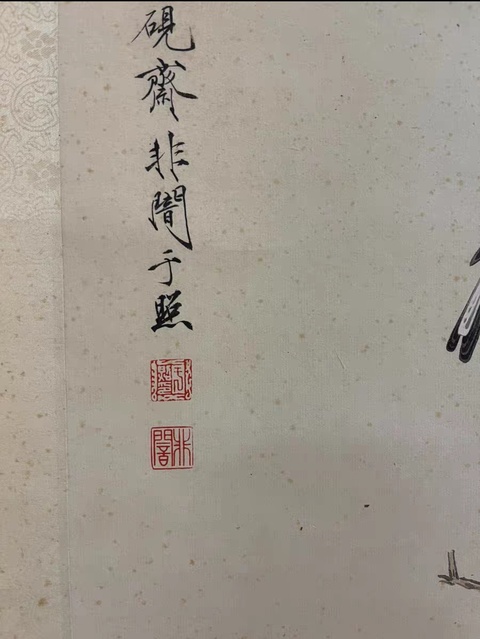 硯齋非闇于照
非闇